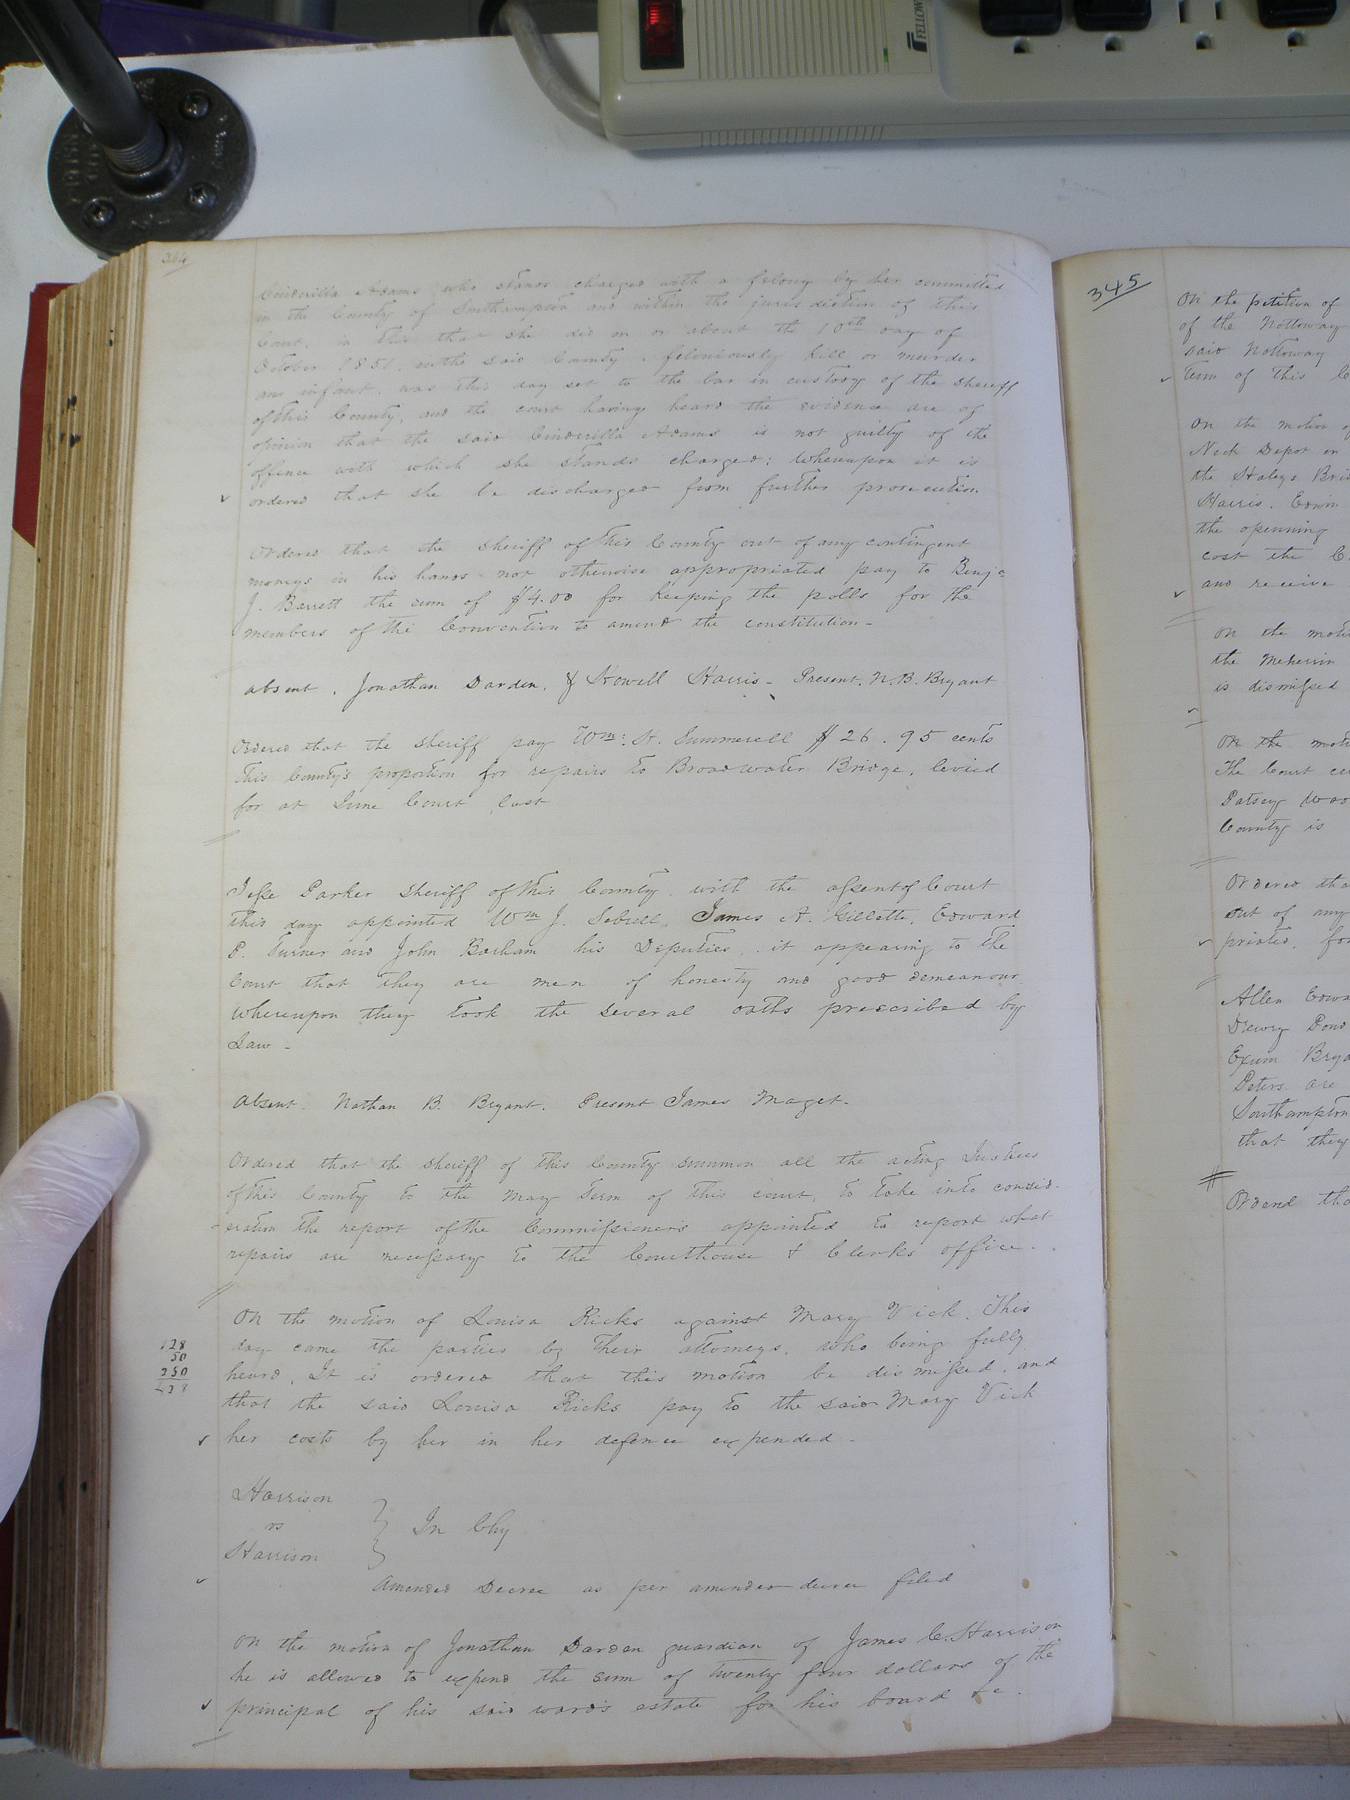 344
Cinderilla Adams who stands charged with a felony by her committed
in the County of Southampton and within the jurisdiction of this
Court, in this that she did on or about the 10th day of
October 1851, in the said County, feloniously kill or murder
an infant, was this day set to the bar in custody of the sheriff
of this County, and the court having heard the evidence are of
opinion that the said Cinderilla Adams is not guilty of the
offence with which she stands charged; Whereupon it is
ordered that she be discharged from further prosecution
Ordered that the sheriff of this County out of any contingent
moneys in his hands not otherwise appropriated pay to Benja
J. Barrett the sum of $4.00 for keeping the polls for the
members of the Convention to amend the constitution -
absent, Jonathan Darden, & Howell Harris - Present, N. B. Bryant
Ordered that the sheriff pay Wm: H. Summerell $26.95 cents
this County's proportion for repairs to Broadwater Bridge, levied
for at June Court last
Jesse Parker Sheriff of this County, with the assent of Court
this day appointed Wm J. Sebrell, James A. Gillette, Edward
P. Turner and John Barham his Deputies, it appearing to the
Court that they are men of honesty and good demeanour
Whereupon they took the several oaths prescribed by
Law -
Absent. Nathan B. Bryant. Present James Maget.
Ordered that the sheriff of this County summon all the acting Justices
of this County to the May Term of this court, to take into consid-
eration the report of the Commissioners appointed to report what
repairs are necessary to the Courthouse & Clerks office.
On the motion of Louisa Ricks against Mary Vick. This
day came the parties by their attorneys, who being fully
heard, It is ordered that this motion be dismissed, and
that the said Louisa Ricks pay to the said Mary Vick
her costs by her in her defence expended -
128
50
250
428
Harrison
vs
Harrison
In Chy
Amended Decree as per amended decree filed
On the motion of Jonathan Darden guardian of James C. Harrison
he is allowed to expend the sum of twenty four dollars of the
principal of his said ward's estate for his board &c.
345
On the petition of
of the Nottoway
said Nottoway
Term of this C
On the motion of
Neck Depot on
the Haleys Bri
Harris, Edwin
the openning
cost the C
and receive
On the moti
the Meherrin
is dismissed
On the moti
The Court ce
Patsey Woo
County is
Ordered tha
out of any
priated, for
Allen Edwa
Drewry Pond
Exum Brya
Peters are
Southampton
that they
Ordered tha
FELLOW